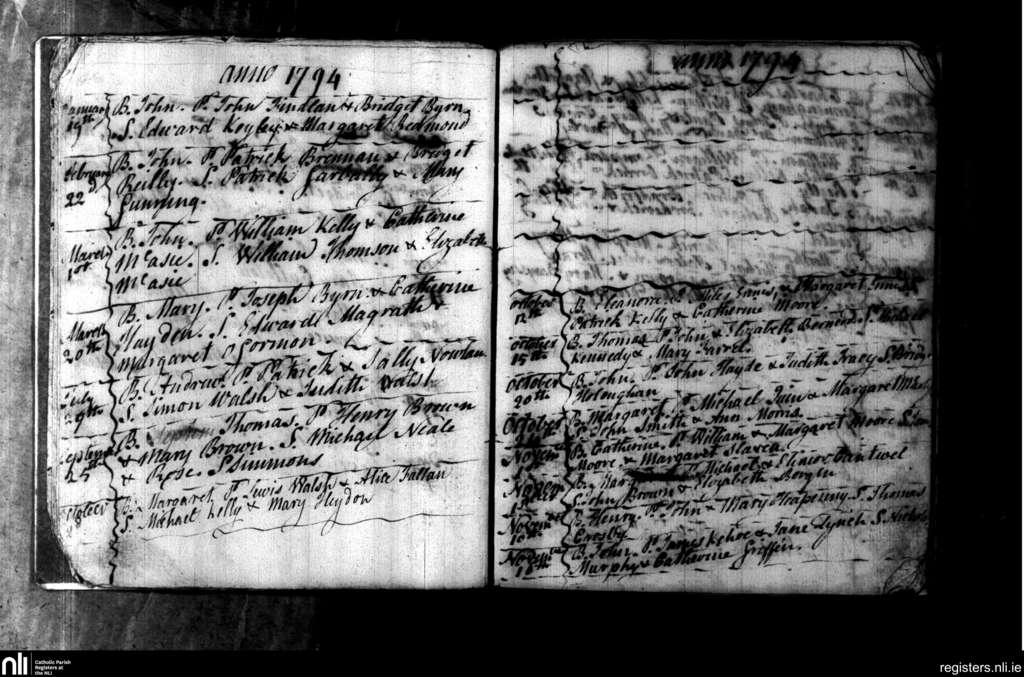 anno 1794
January 19th B. John. P. John Findlan & Bridget Byrn
S. Edward Keyley & Margaret Redmond
February 22d B. John. P. Patrick Brennan & Bridget
Reilly. S. Patrick & Mary
Gunning.
March 1st B. John. P. William Kelly & Catherine
McCasie. S. William Thomson & Elizabeth
McCasie
March 20th B. Mary. P. Joseph Byrn & Catherine
Hayden. S. Edward Magrath &
Margaret Gormon
July 29th B. Andrew P. Patrick & Sally Nowlan
S. Simon Walsh & Judith Walsh
September 25th B. Thomas. P. Henry Brown
& Mary Brown. S. Michael Neale
& Rose Simmons
October 8 B. Margaret P. Lewis Walsh & Alice
S. Michael Kelly & Mary Heydon
anno 1794
October 12th B. Eleanora. P. Miles Ennis & Margaret Ennis
Patrick Kelly & Catherine Moore
October 15th B. Thomas P. John & Elizabeth S.
Kennedy & Mary Farrel.
October 20th B. John. P. John Hayde & Judith Tracy S.
Holoughan
October B. Margaret. P. Michael & Margaret
S. John Smith & Ann Morris
Novem B. Catherine P. William & Margaret Moore S.
Moore & Margaret Slaven
Novem P. Michael & Elinor Cantwel
S. John Brown & Elizabeth
Novem 10th B. Henry. P. John & Mary Hapenny S. Thomas
Crosby
Novem 16th B. John. P. James Kehoe & Jane Lynch S. Nichols
Murphy & Catherine Griffin.
nli
Catholic Parish
Registers at
the NLI
registers.nli.ie